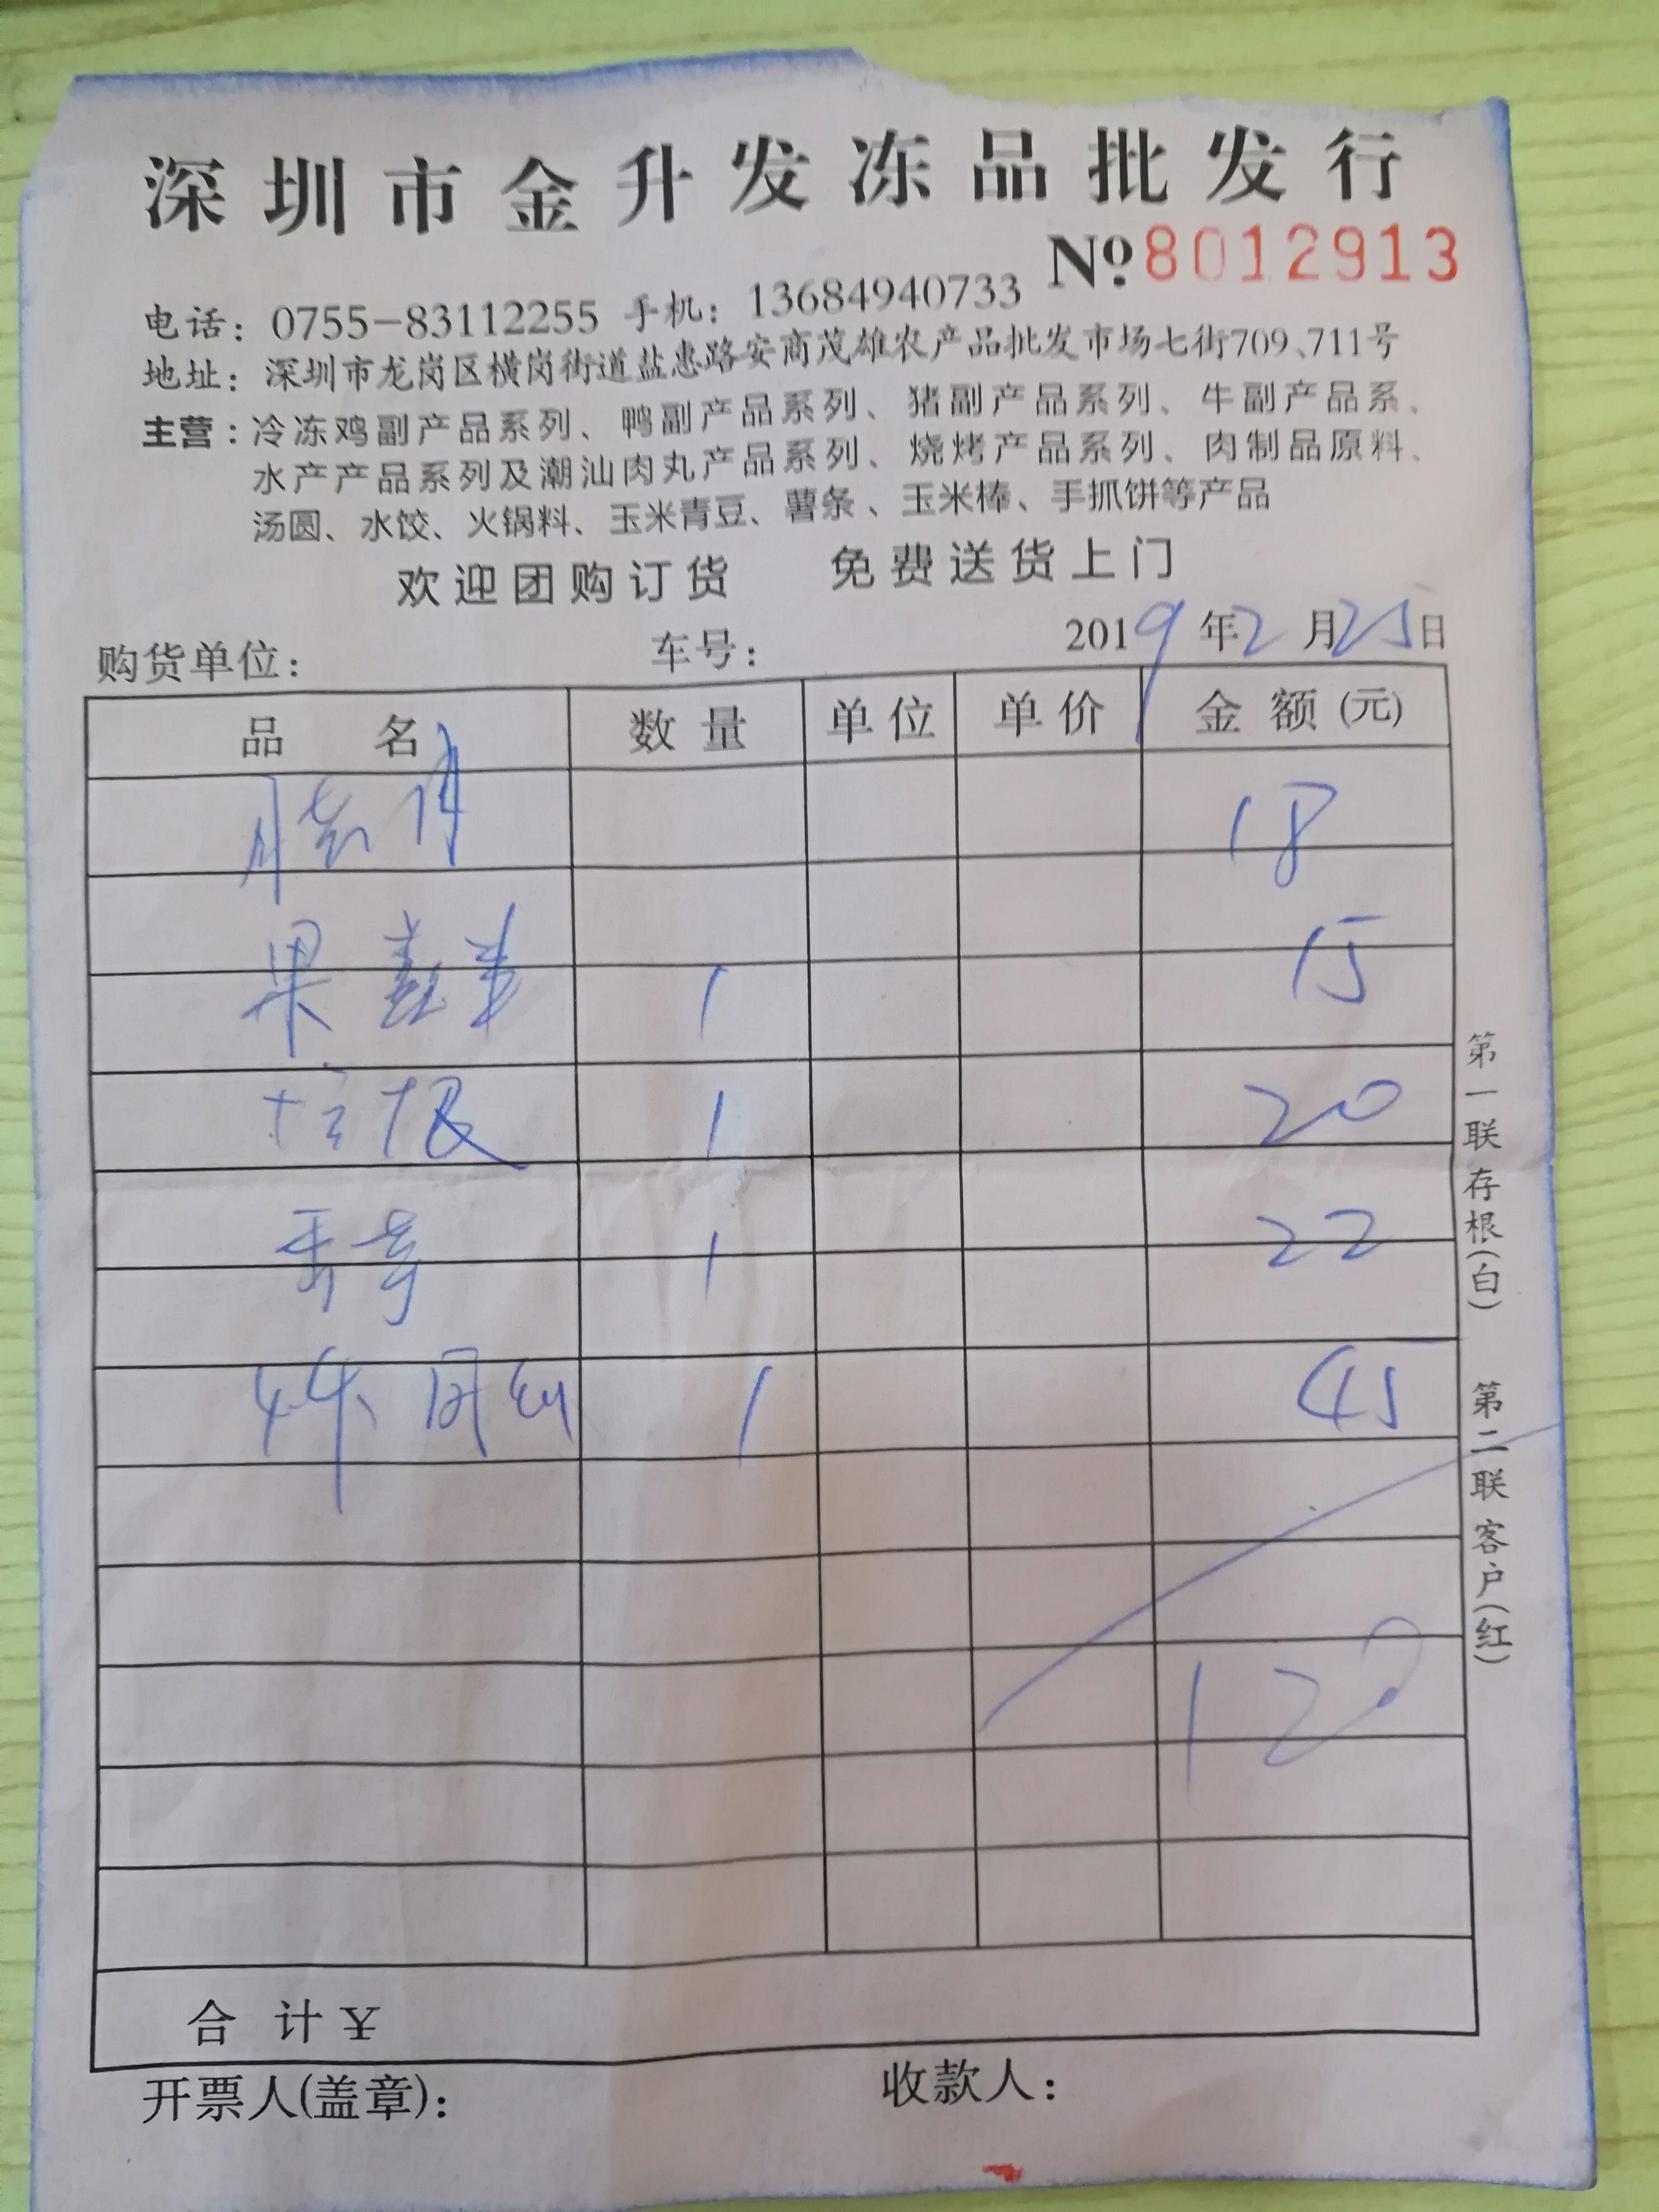 深圳市金升发冻品批发行
№8012913
电话：0755-83112255 手机：13684940733
地址：深圳市龙岗区横岗街道盐惠路安商茂雄农产品批发市场七街709、711号
主营：冷冻鸡副产品系列、鸭副产品系列、猪副产品系列、牛副产品系、
水产产品系列及潮汕肉丸产品系列、烧烤产品系列、肉制品原料、
汤圆、水饺、火锅料、玉米青豆、薯条、玉米棒、手抓饼等产品
欢迎团购订货 免费送货上门
购货单位： 车号： 2019年2月25日
品名 数量 单位 单价 金额(元)
18
果 1 15
1 20
1 22
1 45
12
合计¥
开票人(盖章)： 收款人：
第一联存根(白) 第二联客户(红)